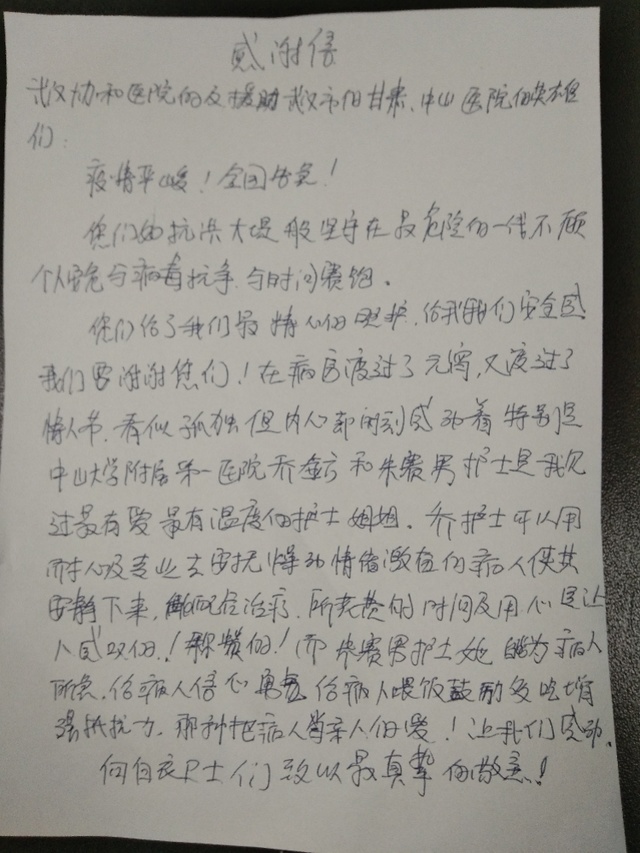 感谢信
武汉协和医院的及援助武汉市的甘肃、中山医院的英雄
们:
疫情严峻!全国告急!
您们如抗洪大堤般坚守在最危险的一线不顾
个人安危与病毒抗争与时间赛跑。
您们给了我们最精心的照护,给我我们安全感
我们要谢谢您们!在病房度过了元宵,又度过了
情人节.看似孤独但内心却时刻感动着特别是
中山大学附属第一医院乔 和朱赛男护士是我见
过最有爱最有温度的护士姐姐.乔护士可以用
耐心及专业去安抚燥动情绪激 的病人使其
安静下来,能配合治疗.所花费的时间及用心是让
人感叹的.! 赞的!而朱赛男护士她能为病人
所急,给病人信心勇气给病人喂饭鼓励多吃增
强抵抗力.那种把病人当亲人的爱!让我们感动.
向白衣卫士们致以最真挚的敬意!